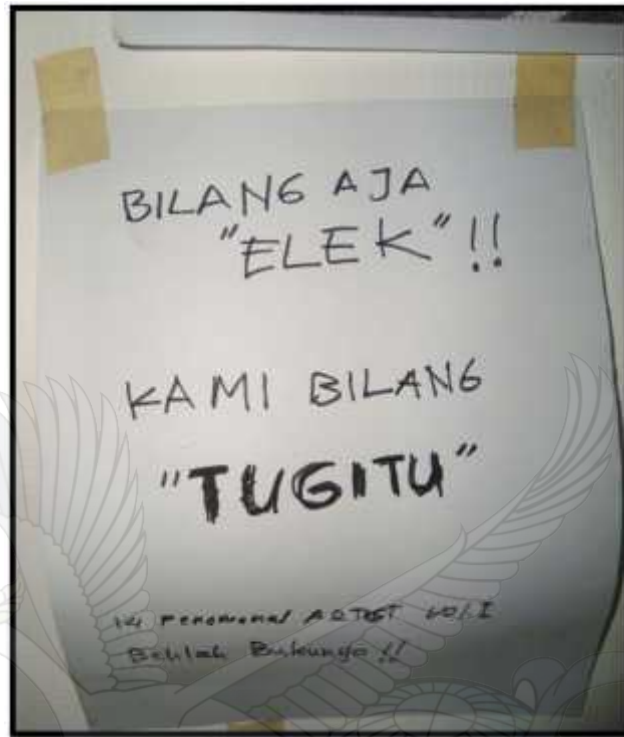 BILANG AJA
"ELEK" !!
KAMI BILANG
"TUGITU"
14 Fenomenal ARTIST
Belilah Bukunya !!